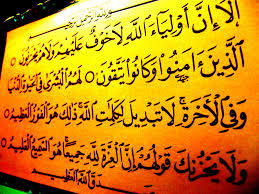 بسم الله الرحمن الرحيم
أَلَا إِنَّ أَوْلِيَاءَ اللَّهِ لَا خَوْفٌ عَلَيْهِمْ وَلَا هُمْ يَحْزَنُونَ ۝
الَّذِينَ ءَامَنُوا وَكَانُوا يَتَّقُونَ ۝ لَهُمُ الْبُشْرَىٰ فِي الْحَيَاةِ الدُّنْيَا
وَفِي الْآخِرَةِ ۚ لَا تَبْدِيلَ لِكَلِمَاتِ اللَّهِ ۚ ذَٰلِكَ هُوَ الْفَوْزُ الْعَظِيمُ ۝
وَلَا يَحْزُنْكَ قَوْلُهُمْ إِنَّ الْعِزَّةَ لِلَّهِ جَمِيعًا هُوَ السَّمِيعُ الْعَلِيمُ ۝
صدق الله العظيم